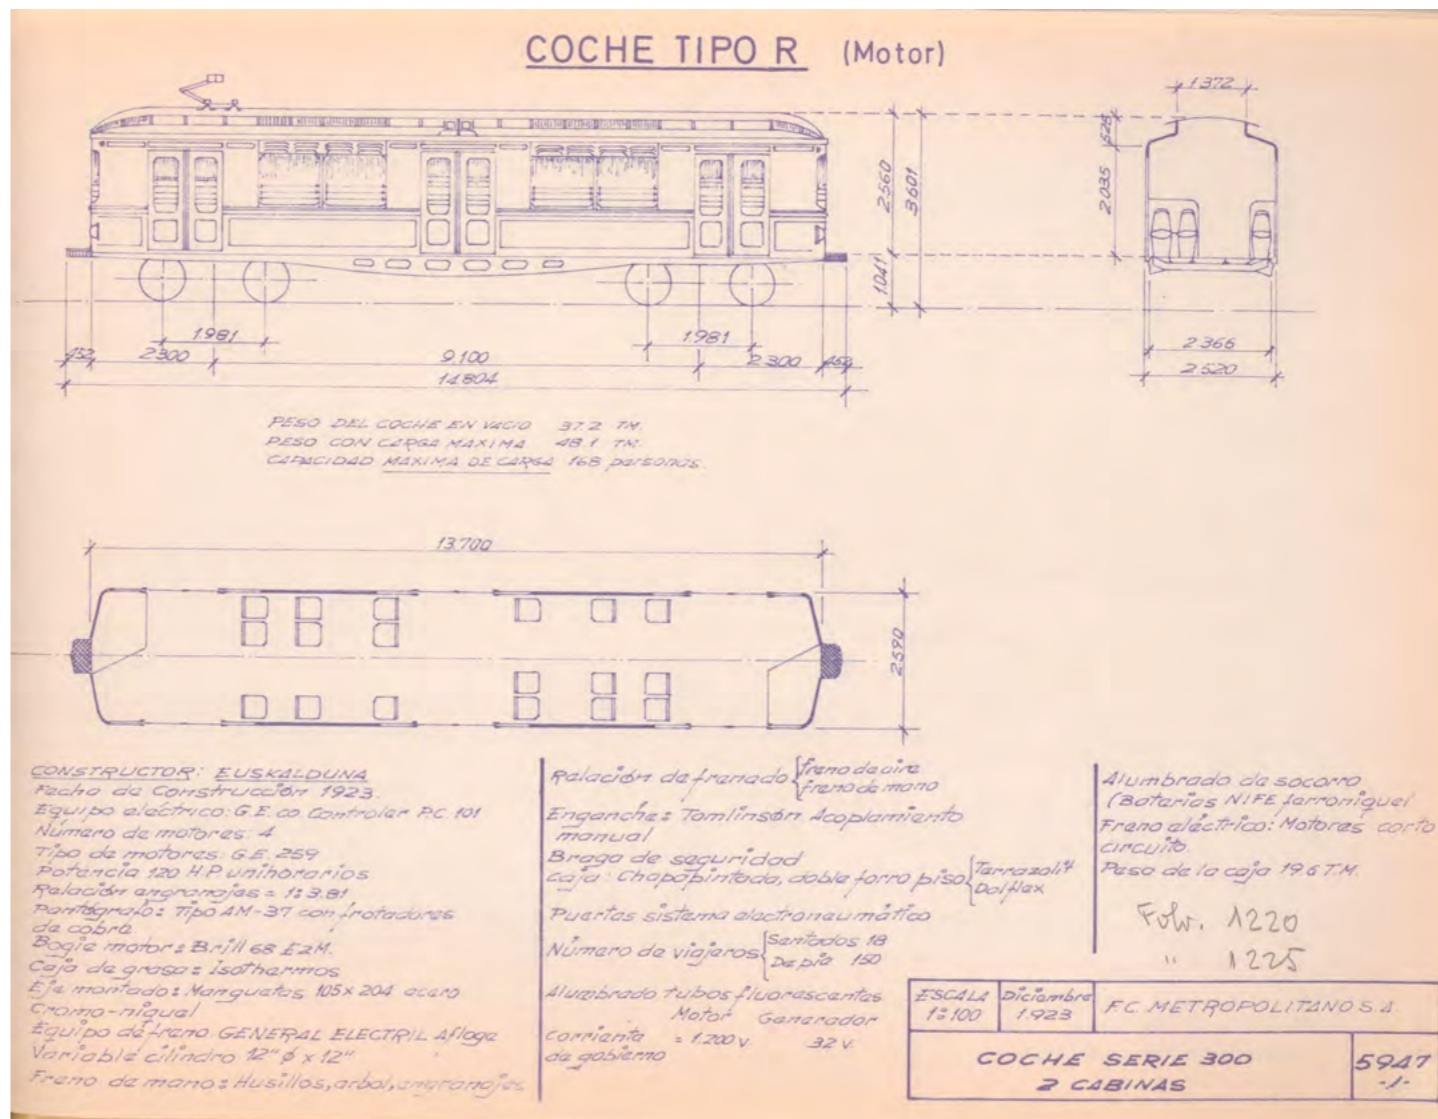 COCHE TIPO R (Motor)
1372
528
2.035
2.560
3.601
1.041
1.981
1.981
452
2300
9.100
2.300
452
14.804
2.366
2.520
PESO DEL COCHE EN VACIO 37.2 TM.
PESO CON CARGA MAXIMA 48.1 TM.
CAPACIDAD MAXIMA DE CARGA 168 personas.
13.700
2.590
CONSTRUCTOR: EUSKALDUNA
Fecha de Construcción 1923.
Equipo eléctrico: G.E. co Controler P.C. 101
Número de motores: 4
Tipo de motores: G.E. 259
Potencia 120 H.P. unihorarios
Relación engranajes = 1:3.81
Pantógrafo: Tipo AM-37 con frotadores
de cobre.
Bogie motor: Brill 68 E2M.
Caja de grasa: Isothermos
Eje montado: Manguetas 105 x 204 acero
Cromo-niquel
Equipo de freno GENERAL ELECTRIL Afloge
Variable cilindro 12" ø x 12"
Freno de mano: Husillos, arbol, engranajes
Relación de frenado {freno de aire
freno de mano
Enganche: Tomlinsón Acoplamiento
manual
Braga de seguridad
Caja: Chapa pintada, doble forro piso {Terrazolit
Dolflex
Puertas sistema electroneumático
Número de viajeros {Sentados 18
De pie 150
Alumbrado tubos fluorescentes
Motor Generador
Corriente = 1.200 v. 32 v.
de gobierno
Alumbrado de socorro
(Baterias NIFE ferroniquel
Freno eléctrico: Motores corto
circuito.
Peso de la caja 19.6 T.M.
1220
" 1225
ESCALA
1:100
Diciembre
1.923
F.C. METROPOLITANO S.A.
COCHE SERIE 300
2 CABINAS
5947
-1-